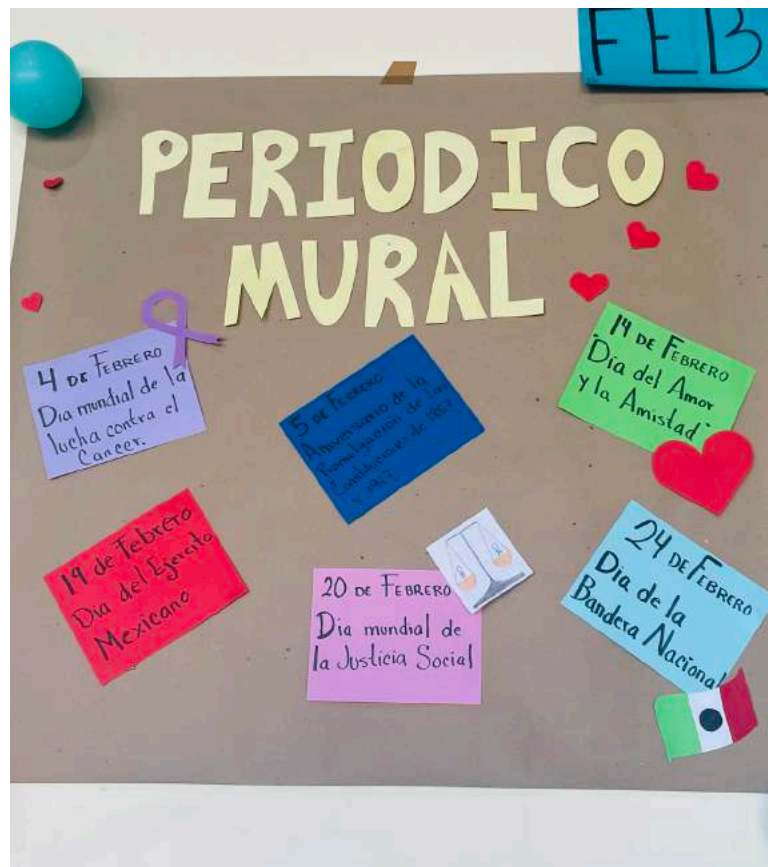 FEB
PERIODICO
MURAL
4 DE FEBRERO
Dia mundial de la
lucha contra el
Cancer.
5 DE FEBRERO
Aniversario de la
Promulgación de la
Constitucion de 1857
y 1917
14 DE FEBRERO
"Día del Amor
y la Amistad"
19 de Febrero
Dia del Ejercito
Mexicano
20 DE FEBRERO
Dia mundial de
la Justicia Social
24 DE FEBRERO
Dia de la
Bandera Nacional